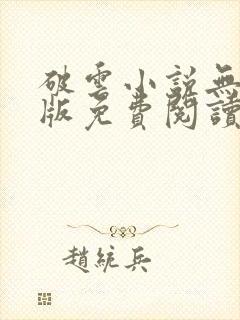 破雲小説無
版免費閱讀
趙統兵